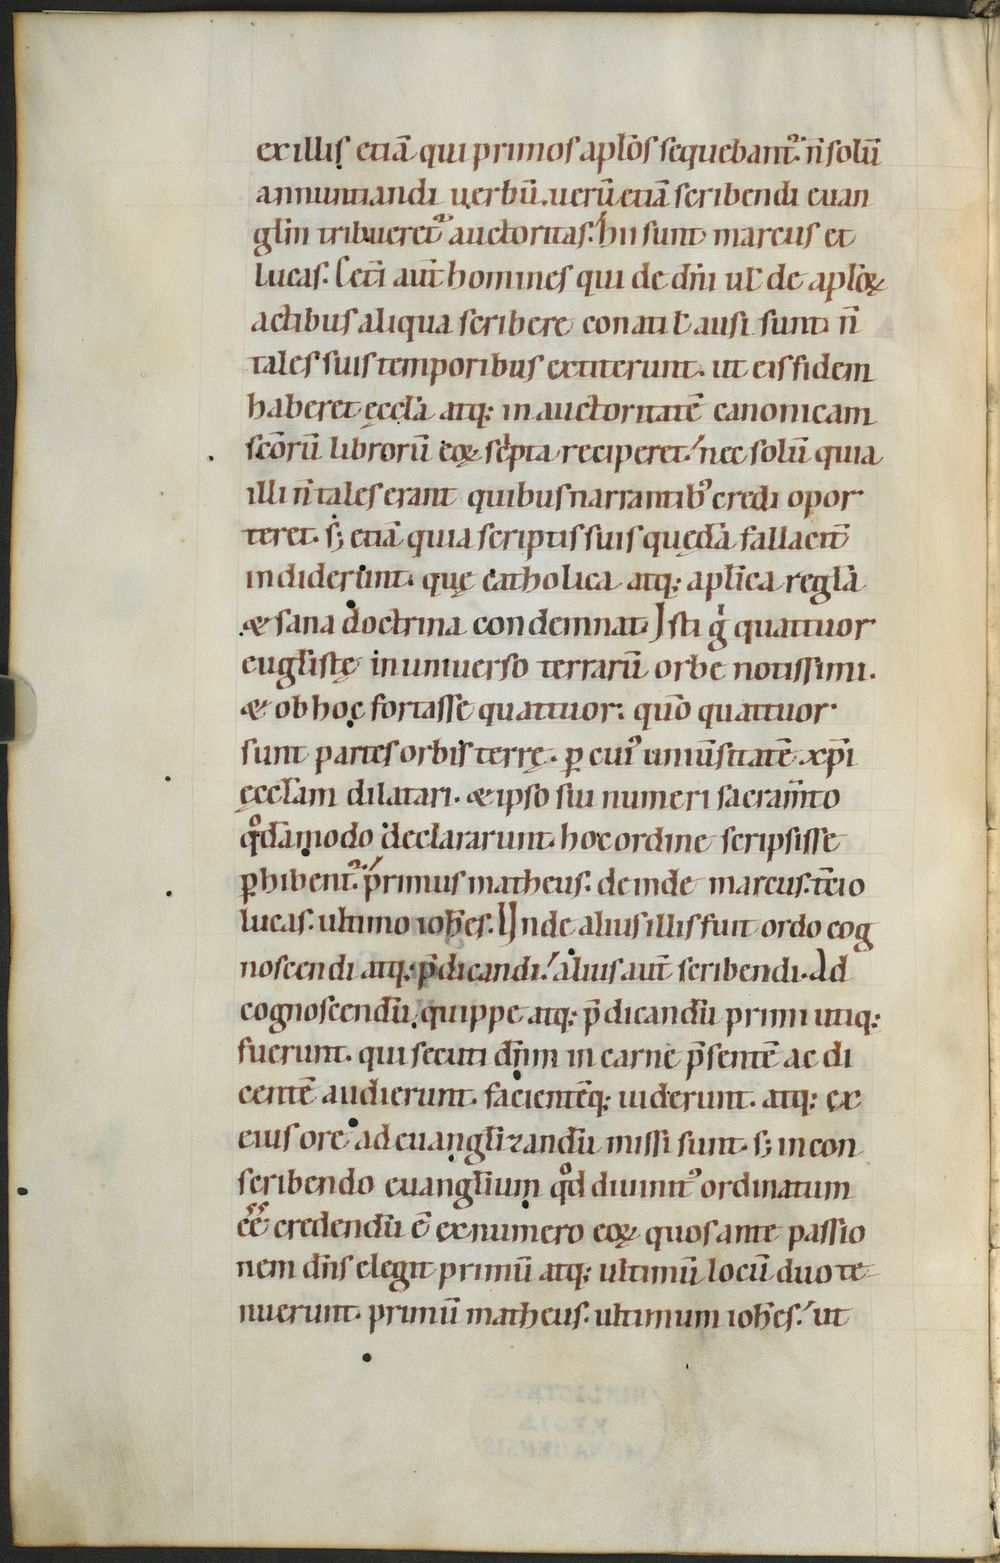 ex illis etiā qui primos aplōs sequebant᷑. n̄ solū
annuntiandi uerbū. uerū etiā scribendi euan
gliū tribueret᷑ auctoritas. hii sunt marcus et
lucas. Ceti aūt homines qui de dn̄i uƚ de aploꝝ
actibus aliqua scribere conati ƚ ausi sunt n̄
tales suis temporibus extiterunt. ut eis fidem
haberet ęccła atq; in auctoritatē canonicam
scōrū librorū eoꝝ scͥpta reciperet. nec solū quia
illi n̄ tales erant quibus narrantibꝰ credi opor
teret. s; etiā quia scriptis suis quędā fallacit̄
indiderunt. quę catholica atq; apłica regłā
& sana doctrina condemnat. Isti gͥ quattuor
eugłistę in uniuerso terrarū orbe notissimi.
& ob hoc fortasse quattuor. quō quattuor
sunt partes orbis terrę. ꝑ cuiꝰ uniūsitatē xp̄i
ęccłam dilatari. & ipso sui numeri sacram̄to
qͦdāmodo declararunt. hoc ordine scripsisse
ꝑhibent᷑. primus matheus. deinde marcus. t̄cio
lucas. ultimo ioħes. Unde alius illis fuit ordo cog
noscendi atq; p̄dicandi. alius aūt scribendi. Ad
cognoscendū quippe atq; p̄dicandū primi utiq;
fuerunt. qui secuti dn̄m in carne p̄sentē ac di
centē audierunt. facientēq; uiderunt. atq; ex
eius ore ad euangłizandū missi sunt. s; in con
scribendo euangłium qͦd diuinitꝰ ordinatum
eē credendū ē ex numero eoꝝ quos ante passio
nem dn̄s elegit primū atq; ultimū locū duo te
nuerunt. primū matheus. ultimum ioħes. ut